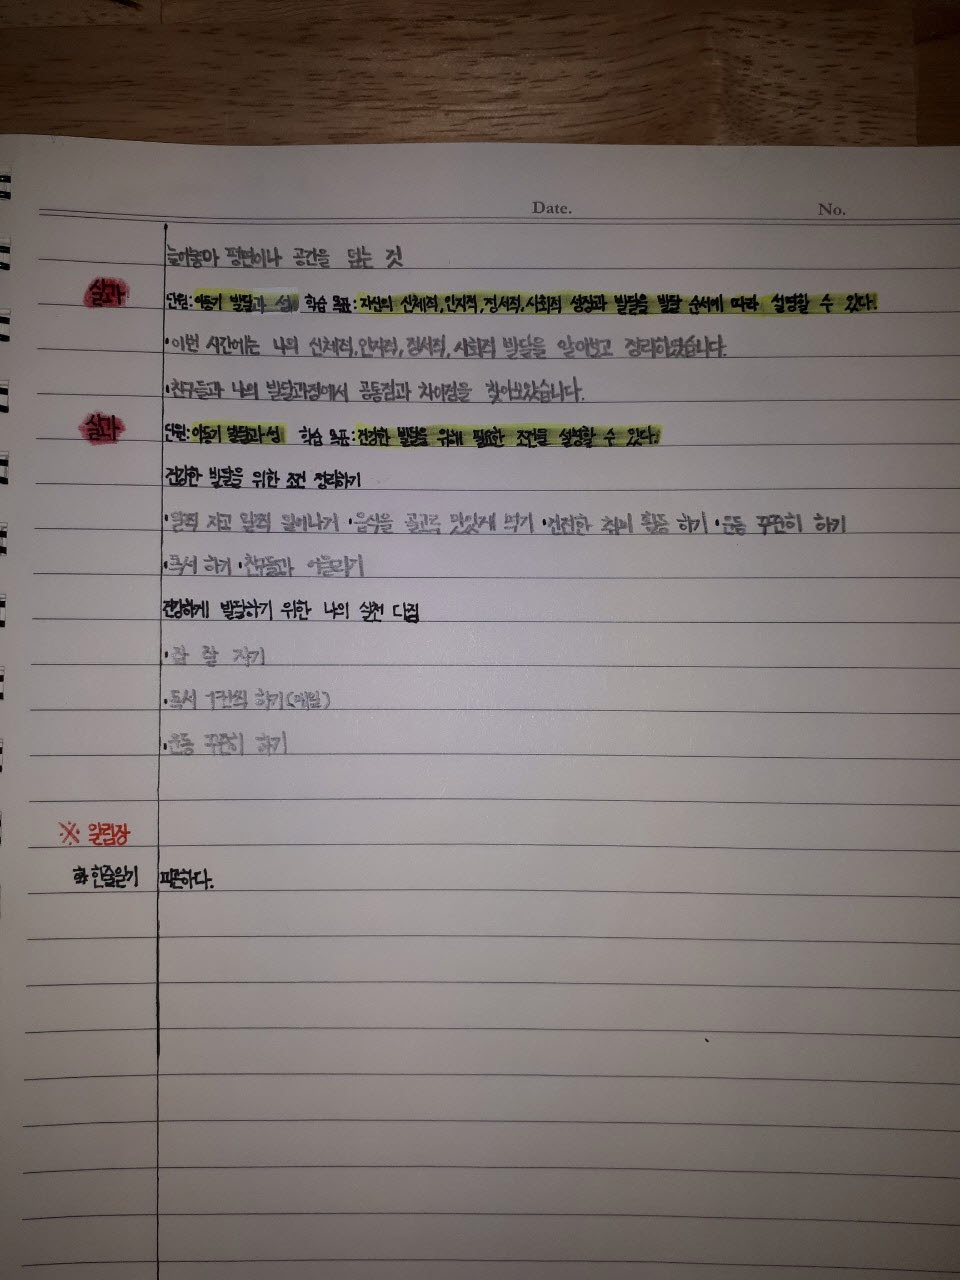 Date. No.
늘어놓아 평면이나 공간을 덮는 것
실과 단원:아동기 발달과 성 학습 목표:자신의 신체적,인지적,정서적,사회적 성장과 발달을 발달 순서에 따라 설명할 수 있다.
·이번 시간에는 나의 신체적,인지적,정서적,사회적 발달을 알아보고 정리하였습니다.
·친구들과 나의 발달과정에서 공통점과 차이점을 찾아보았습니다.
실과 단원:아동기 발달과 성 학습 목표:건강한 발달을 위해 필요한 조건을 설명할 수 있다.
건강한 발달을 위한 조건 정리하기
·일찍 자고 일찍 일어나기 ·음식을 골고루 맛있게 먹기 ·건전한 취미 활동 하기 ·운동 꾸준히 하기
·독서 하기 ·친구들과 어울리기
건강하게 발달하기 위한 나의 실천 다짐
·잠 잘 자기
·독서 1권씩 하기(매일)
·운동 꾸준히 하기
※ 알림장
한줄일기 피곤하다.